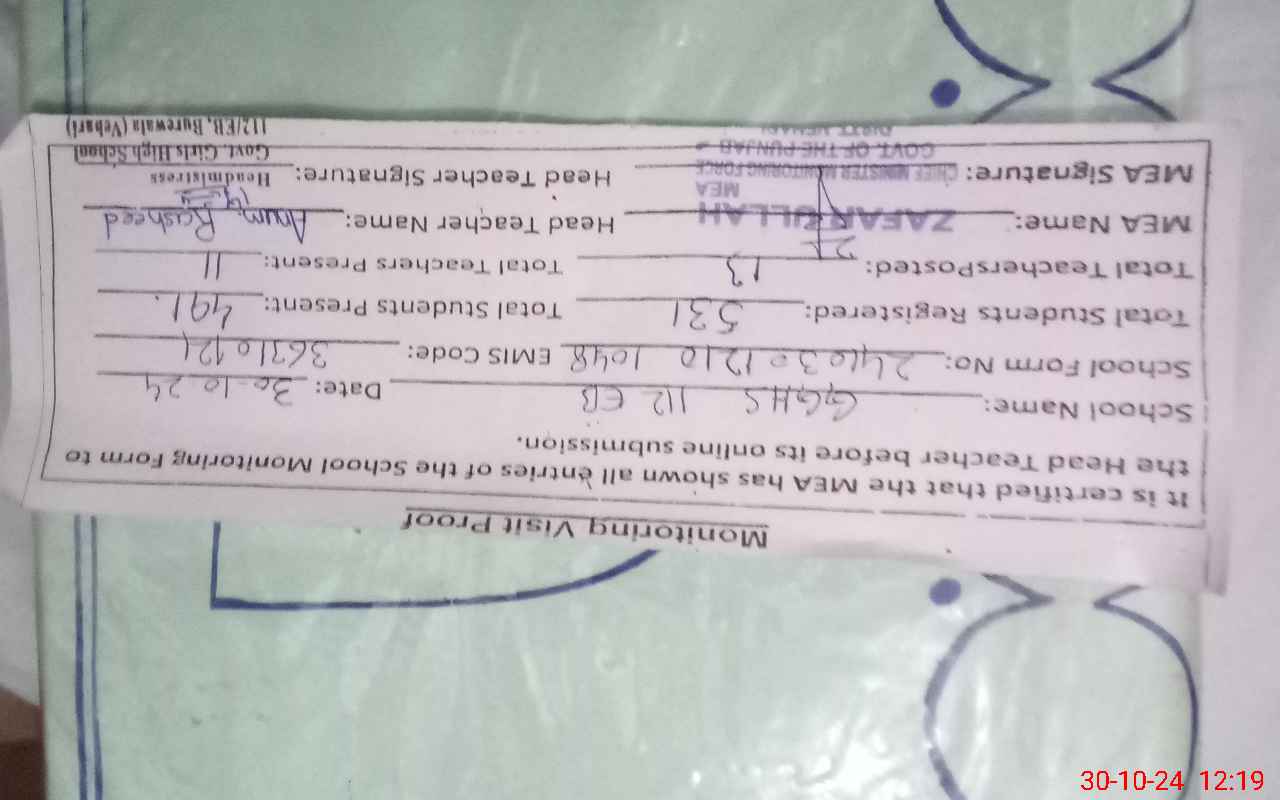 Monitoring Visit Proof
It is certified that the MEA has shown all entries of the School Monitoring Form to
the Head Teacher before its online submission.
School Name: GGHS 112 EB Date: 30-10-24
School Form No: 2410301210 1048 EMIS Code: 36310121
Total Students Registered: 531 Total Students Present: 491
Total Teachers Posted: 13 Total Teachers Present: 11
MEA Name: ZAFAR ULLAH Head Teacher Name: Anum Rasheed
MEA
MEA Signature: CHIEF MINISTER MONITORING FORCE Head Teacher Signature: Headmistress
GOVT. OF THE PUNJAB Govt. Girls High School
DISTT. VEHARI 112/EB, Burewala (Vehari)
30-10-24 12:19